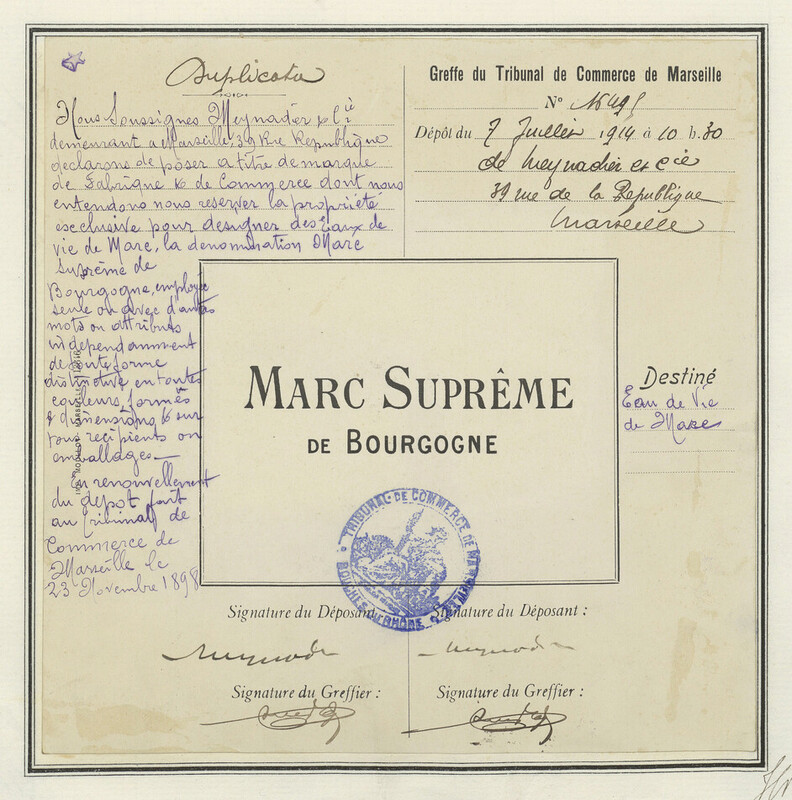 Duplicata
Nous Soussignés Meynadier & Cie
demeurant a Marseille, 39 Rue Republique
declarons deposer a titre de marque
de Fabrique & de Commerce dont nous
entendons nous reserver la propriété
exclusive pour designer des Eaux de
vie de Marc, la denomination Marc
Suprême de
Bourgogne, employée
seule ou avec d'autres
mots ou attributs
independamment
de toute forme
distinctive en toutes
couleurs, formes
& dimensions & sur
tous recipients ou
emballages —
En renouvellement
du depot fait
au Tribunal de
Commerce de
Marseille le
23 Novembre 1898
Greffe du Tribunal de Commerce de Marseille
N°
Dépôt du 7 Juillet 1914 à 10 h. 30
de Meynadier et Cie
39 rue de la Republique
Marseille
MARC SUPRÊME
DE BOURGOGNE
Destiné
Eau de Vie
de Marc
TRIBUNAL DE COMMERCE DE MARSEILLE
BOUCHES DU RHÔNE
Signature du Déposant : Signature du Déposant :
Signature du Greffier : Signature du Greffier :